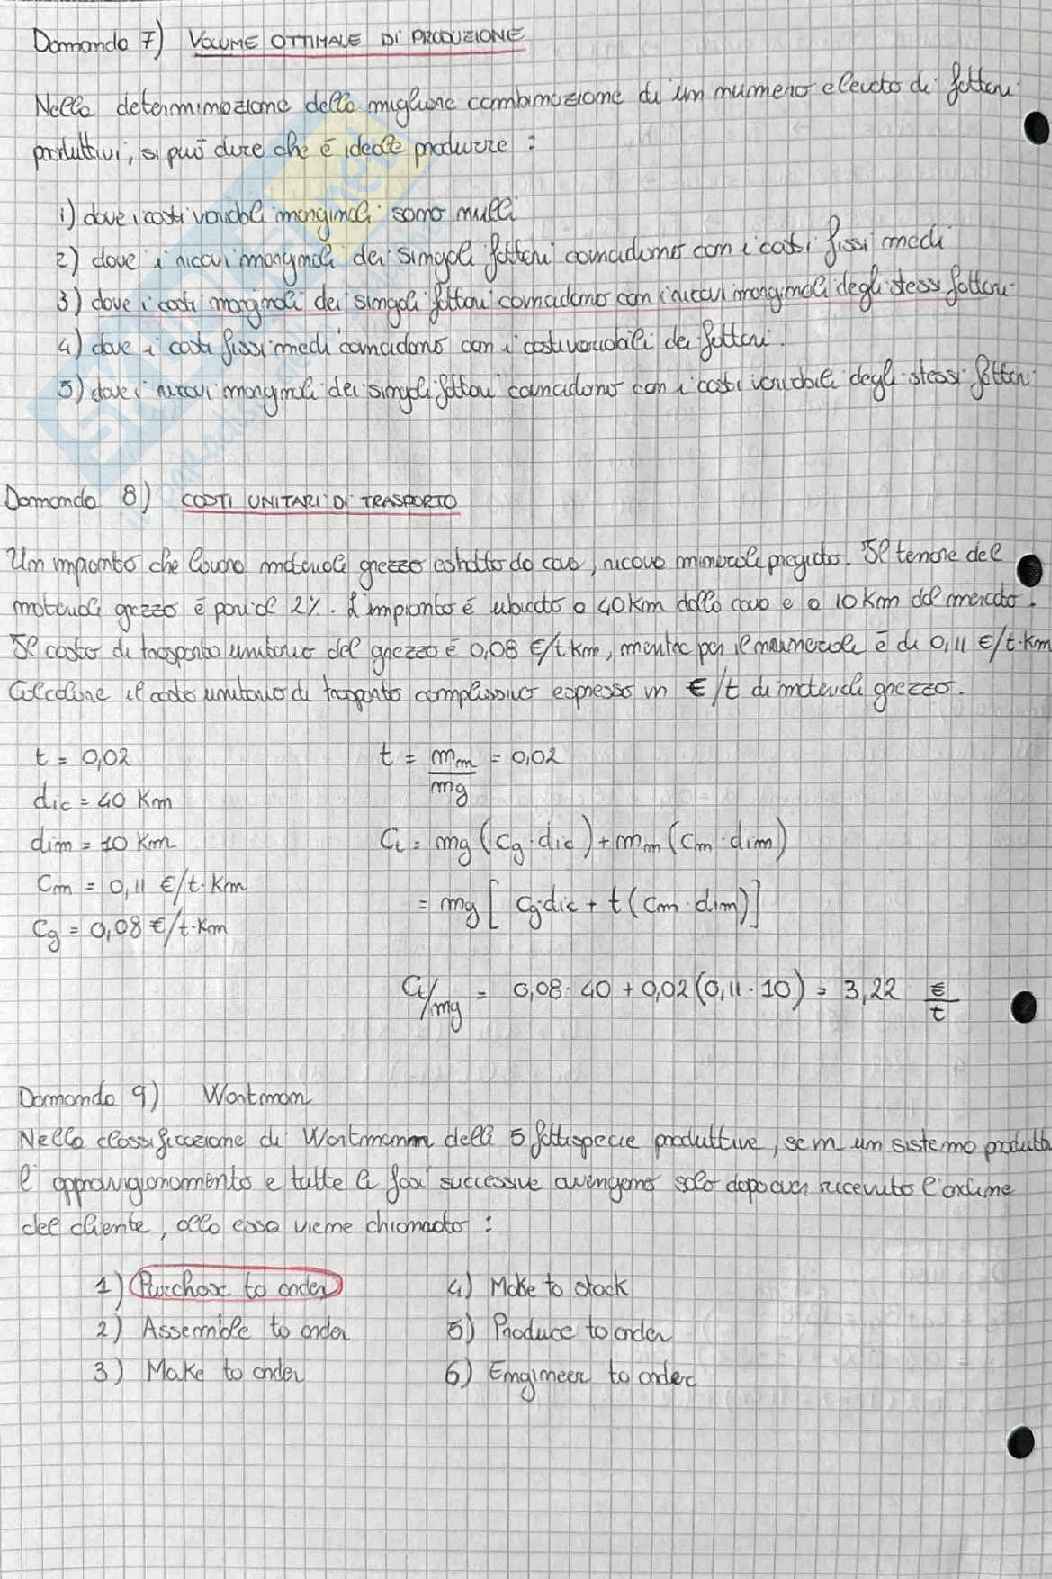 Domanda 7) VOLUME OTTIMALE DI PRODUZIONE
Nella determinazione della migliore combinazione di un numero elevato di fattori
produttivi, si può dire che è ideale produrre :
1) dove i costi variabili marginali sono nulli
2) dove i ricavi marginali dei singoli fattori coincidono con i costi fissi medi
3) dove i costi marginali dei singoli fattori coincidono con i ricavi marginali degli stessi fattori
4) dove i costi fissi medi coincidono con i costi variabili dei fattori.
5) dove i ricavi marginali dei singoli fattori coincidono con i costi variabili degli stessi fattori
Domanda 8) COSTI UNITARI DI TRASPORTO
Un impianto che lavora materiale grezzo estratto da cava, ricava minerale pregiato. Il tenore del
materiale grezzo è pari al 2%. L'impianto è ubicato a 40 km dalla cava e a 10 km dal mercato.
Il costo di trasporto unitario del grezzo è 0,08 €/t.km, mentre per il minerale è di 0,11 €/t.km
Calcolare il costo unitario di trasporto complessivo espresso in €/t di materiale grezzo.
t = 0,02 t = mm/mg = 0,02
dic = 40 Km
dim = 10 Km Ct = mg (cg · dic) + mm (cm · dim)
Cm = 0,11 €/t.Km = mg [ cg·dic + t (cm · dim)]
Cg = 0,08 €/t.Km
Ct/mg = 0,08 · 40 + 0,02 (0,11 · 10) = 3,22 €/t
Domanda 9) Wortmann
Nella classificazione di Wortmann delle 5 fattispecie produttive, se in un sistema produttivo
l'approvvigionamento e tutte le fasi successive avvengono solo dopo aver ricevuto l'ordine
del cliente, allora esso viene chiamato :
1) Purchase to order 4) Make to stock
2) Assemble to order 5) Produce to order
3) Make to order 6) Engineer to order